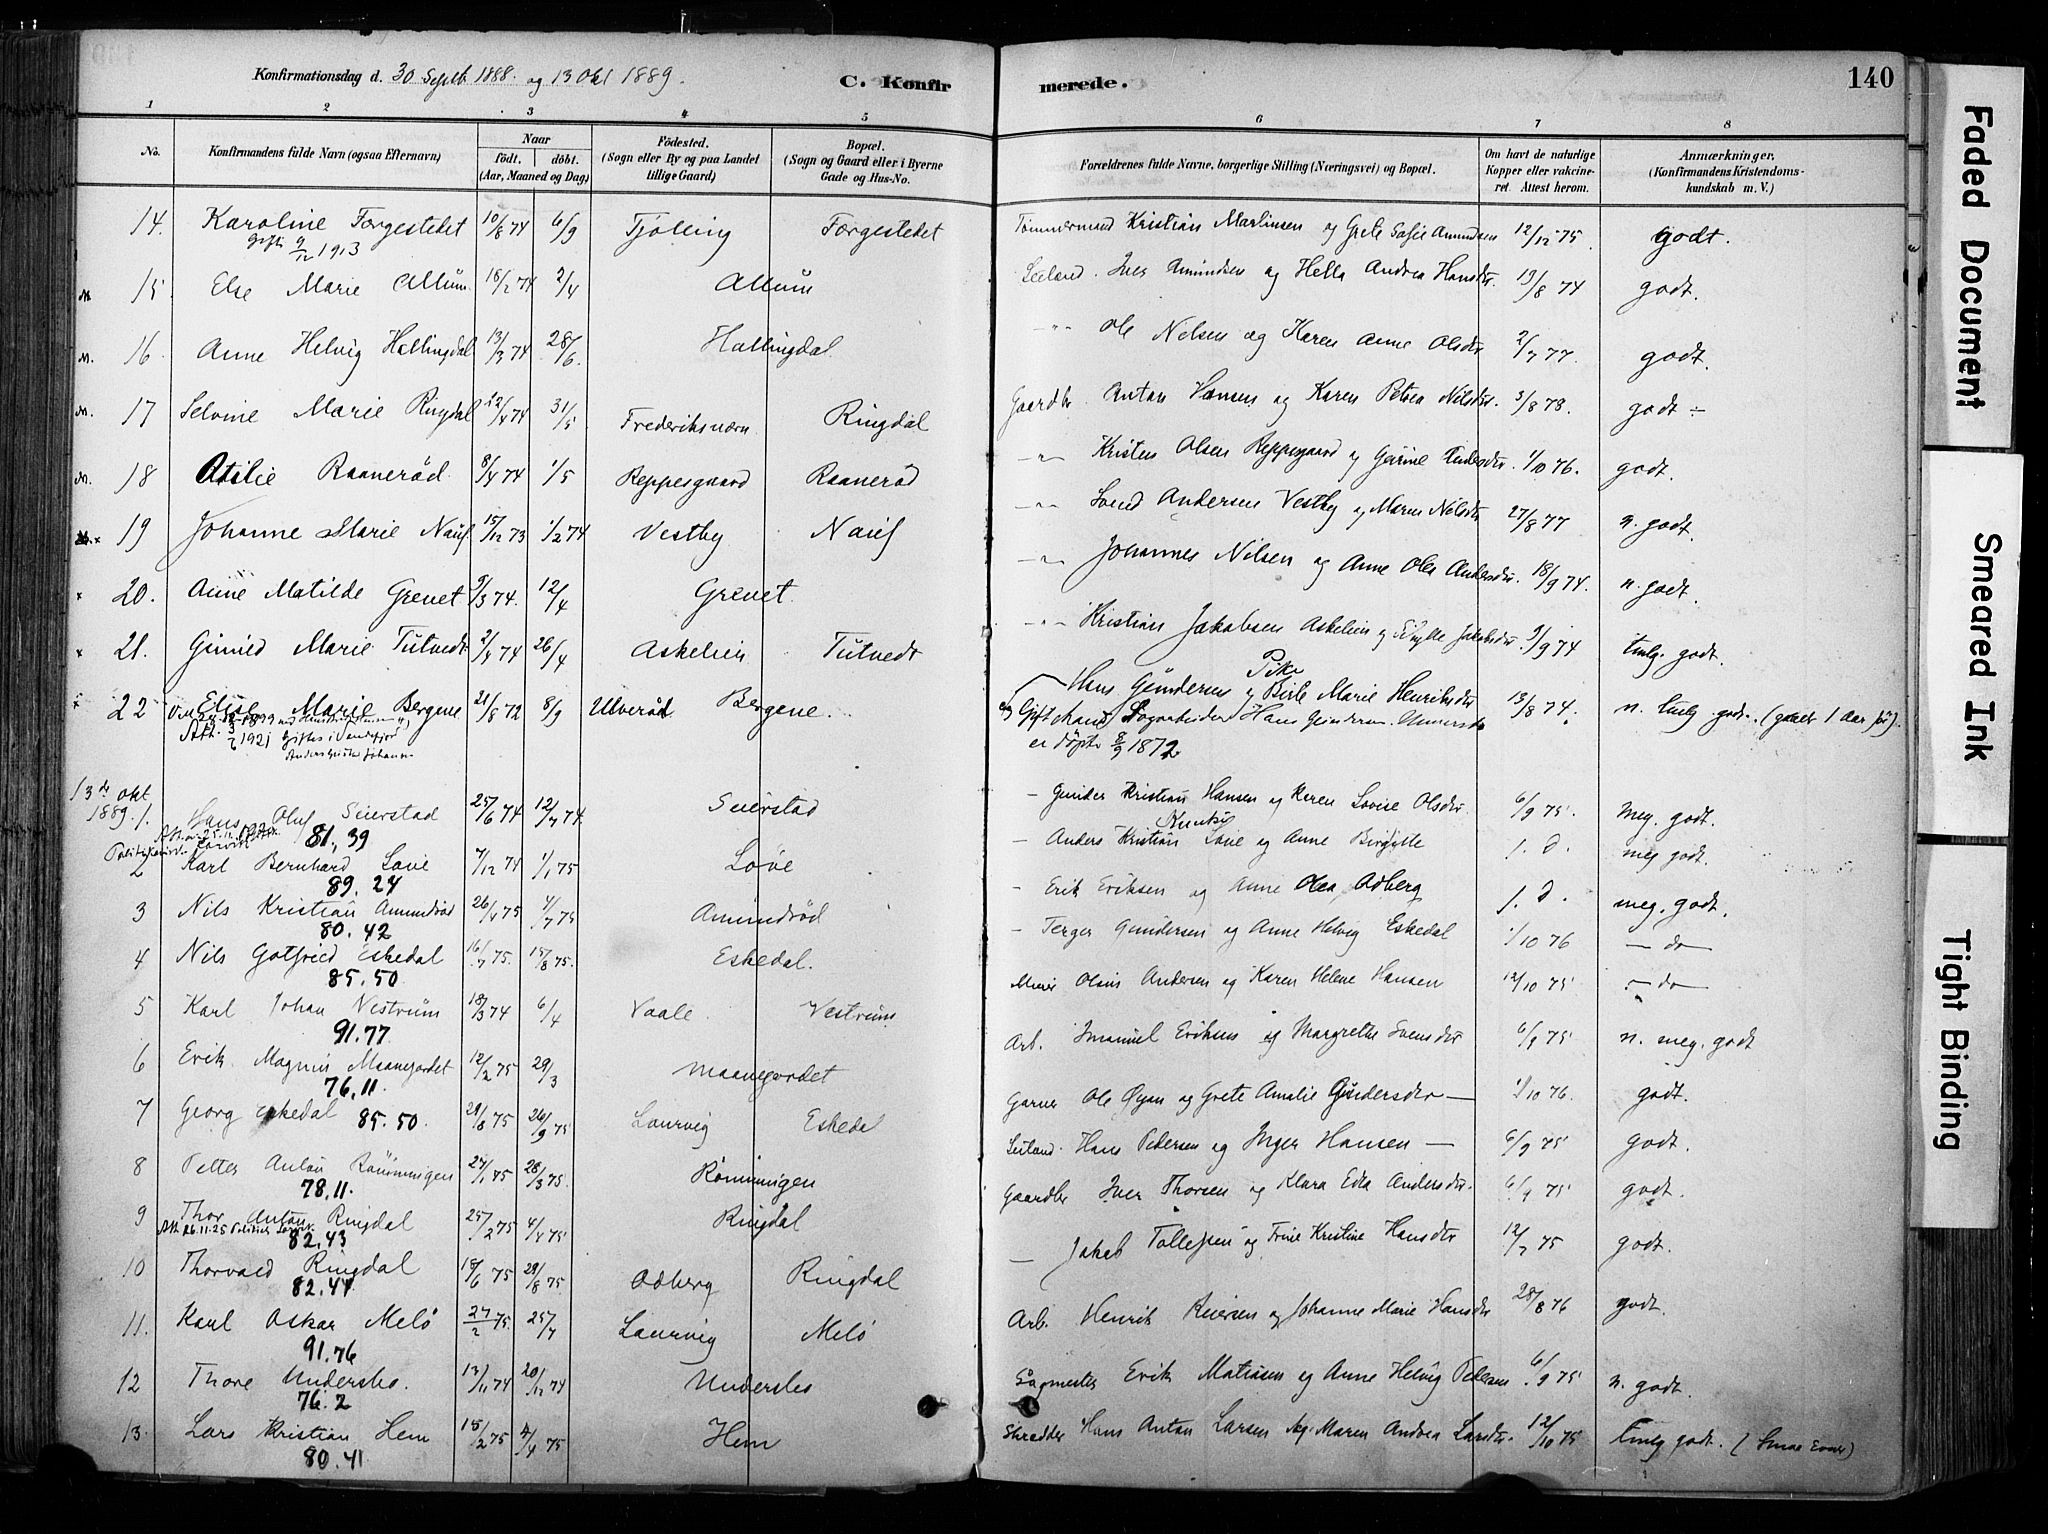 Konfirmationsdag d. 30 Septb 1888. og 13 Okt 1889. C. Konfirmerede. 140
1 2 3 4 5 6 7 8
No. Konfirmandens fulde Navn (ogsaa Efternavn) Naar født. døbt. (Aar, Maaned og Dag) Fødested. (Sogn eller By og paa Landet tillige Gaard) Bopæl. (Sogn og Gaard eller i Byerne Gade og Hus-No. Forældrenes fulde Navne, borgerlige Stilling (Næringsvei) og Bopæl. Om havt de naturlige Kopper eller vakcineret. Attest herom. Anmærkninger. (Konfirmandens Kristendomskundskab m. V.)
14. Karoline Færgestedet 10/8 74 6/9 Tjølling Færgestedet Tømmermand Kristian Martinsen og Grete Sofie Amundsen 12/12 75. godt.
Gift 9/12 1913
M. 15. Else Marie Allum 16/2 74 2/4 Allum Seiland. Iver Amundsen og Hella Andrea Hansdtr. 19/8 74 godt.
M. 16. Anne Helvig Hallingdal 13/3 74 28/6. Hallingdal -"- Ole Nelsen og Karen Anne Olsdtr 2/7 77. godt.
M. 17 Selvine Marie Ringdal 22/4 74 31/5 Frederiksværn Ringdal Gaardbr. Anton Hansen og Karen Petrea Nilsdtr. 3/8 78. godt ÷
M. 18 Otilie Raanerød. 8/4 74 1/5 Reppesgaard Raanerød -"- Kristen Olsen Reppesgaard og Gurine Andersdtr 1/10 76. godt.
x 19 Johanne Marie Nauf 15/12 73 1/2 74 Vestby Nauf -"- Svend Andersen Vestby og Maren Nilsdtr 27/8 77 n. godt.
x 20. Anne Matilde Grevet 9/3 74. 12/4 Grevet. -"- Johannes Nilsen og Anne Olea Andersdtr. 18/9 74. n. godt.
x 21. Gunild Marie Tutvedt 2/4 74 26/4 Askelien Tutvedt -"- Kristian Jakobsen Askelien og Jakobsdtr. 9/9 74 temlg. godt.
x 22 Elise Marie Bergene 21/8 72 8/9 Ulverød Bergene. Hans Gundersen og Pike Birte Marie Henriksdtr 13/8 74. n. temlg godt. (gaaet 1 Aar før).
Gift Mand Sagarbeider Hans Gundersen
er døpt 8/9 1872
Att. 3/6 1921 Giftes i Sandefjord
13de okt.
1889. 1. Hans Oluf Seierstad 25/6 74 12/7 74. Seierstad - Gunder Kristian Hansen og Karen Lovise Olsdtr 6/9 75. Meg. godt.
81, 39
2 Karl Bernhard Løve 7/12 74 1/1 75 Løve - Anders Kristian Løve og Anne Birgitte 1. d. meg godt.
89. 24
3 Nils Kristian Amundrød 26/4 75 4/7 75 Amundrød - Erik Eriksen og Anne Olea Odberg 1. d. meg. godt.
80. 42
4 Nils Gotfried Eskedal 16/7 75. 15/8 75. Eskedal. - Terger Gundersen og Anne Helvig Eskedal 1/10 76 - do -
85. 50
5 Karl Johan Vestrum 18/3 74 6/4 Vaale. Vestrum Murer Olaus Andersen og Karen Helene Hansen 12/10 75 - do -
91. 77
6 Erik Magnus Maanejordet 12/2 75 29/3 Maanejordet Arb. Imanuel Eriksen og Margrethe Svensdtr 6/9 75 n. meg. godt
76, 11
7 Georg Eskedal 85. 50. 29/8 75 26/9 75 Laurvig Eskedal Garver Ole Øyan og Grete Amalie Gundersdtr - 1/10 76. godt.
8 Petter Anton Rønningen 24/1 75 28/3 75. Rønningen Seiland. Hans Pedersen og Inger Hansen - 6/9 75 godt.
78. 11.
9 Thor Anton Ringdal 25/2 75 4/4 75 Ringdal Gaardbr Iver Thorsen og Klara Edla Andersdtr. 6/9 75 godt.
Att 26.11.25 82. 43
10 Thorvald Ringdal 18/6 75 29/8 75. Odberg Ringdal - Jakob Tollefsen og Trine Kristine Hansdtr 12/7 75 godt.
82. 44
11. Karl Oskar Melø 27/2 75. 25/7 Laurvig Melø Arb. Henrik Reiersen og Johanne Marie Hansdtr 28/8 76 godt.
91. 76
12 Thore Undersbo. 13/11 74 20/12 74 Undersbo Sagmester Erik Matisen og Anne Helvig Pedersen. 6/9 75 n. godt.
76. 2
13. Lars Kristian Hem 18/2 75 4/4 75 Hem Skredder Hans Anton Larsen og Maren Andrea Larsdtr. 12/10 75 temlg godt. (Smaa Evner)
80. 41
Faded Document
Smeared Ink
Tight Binding